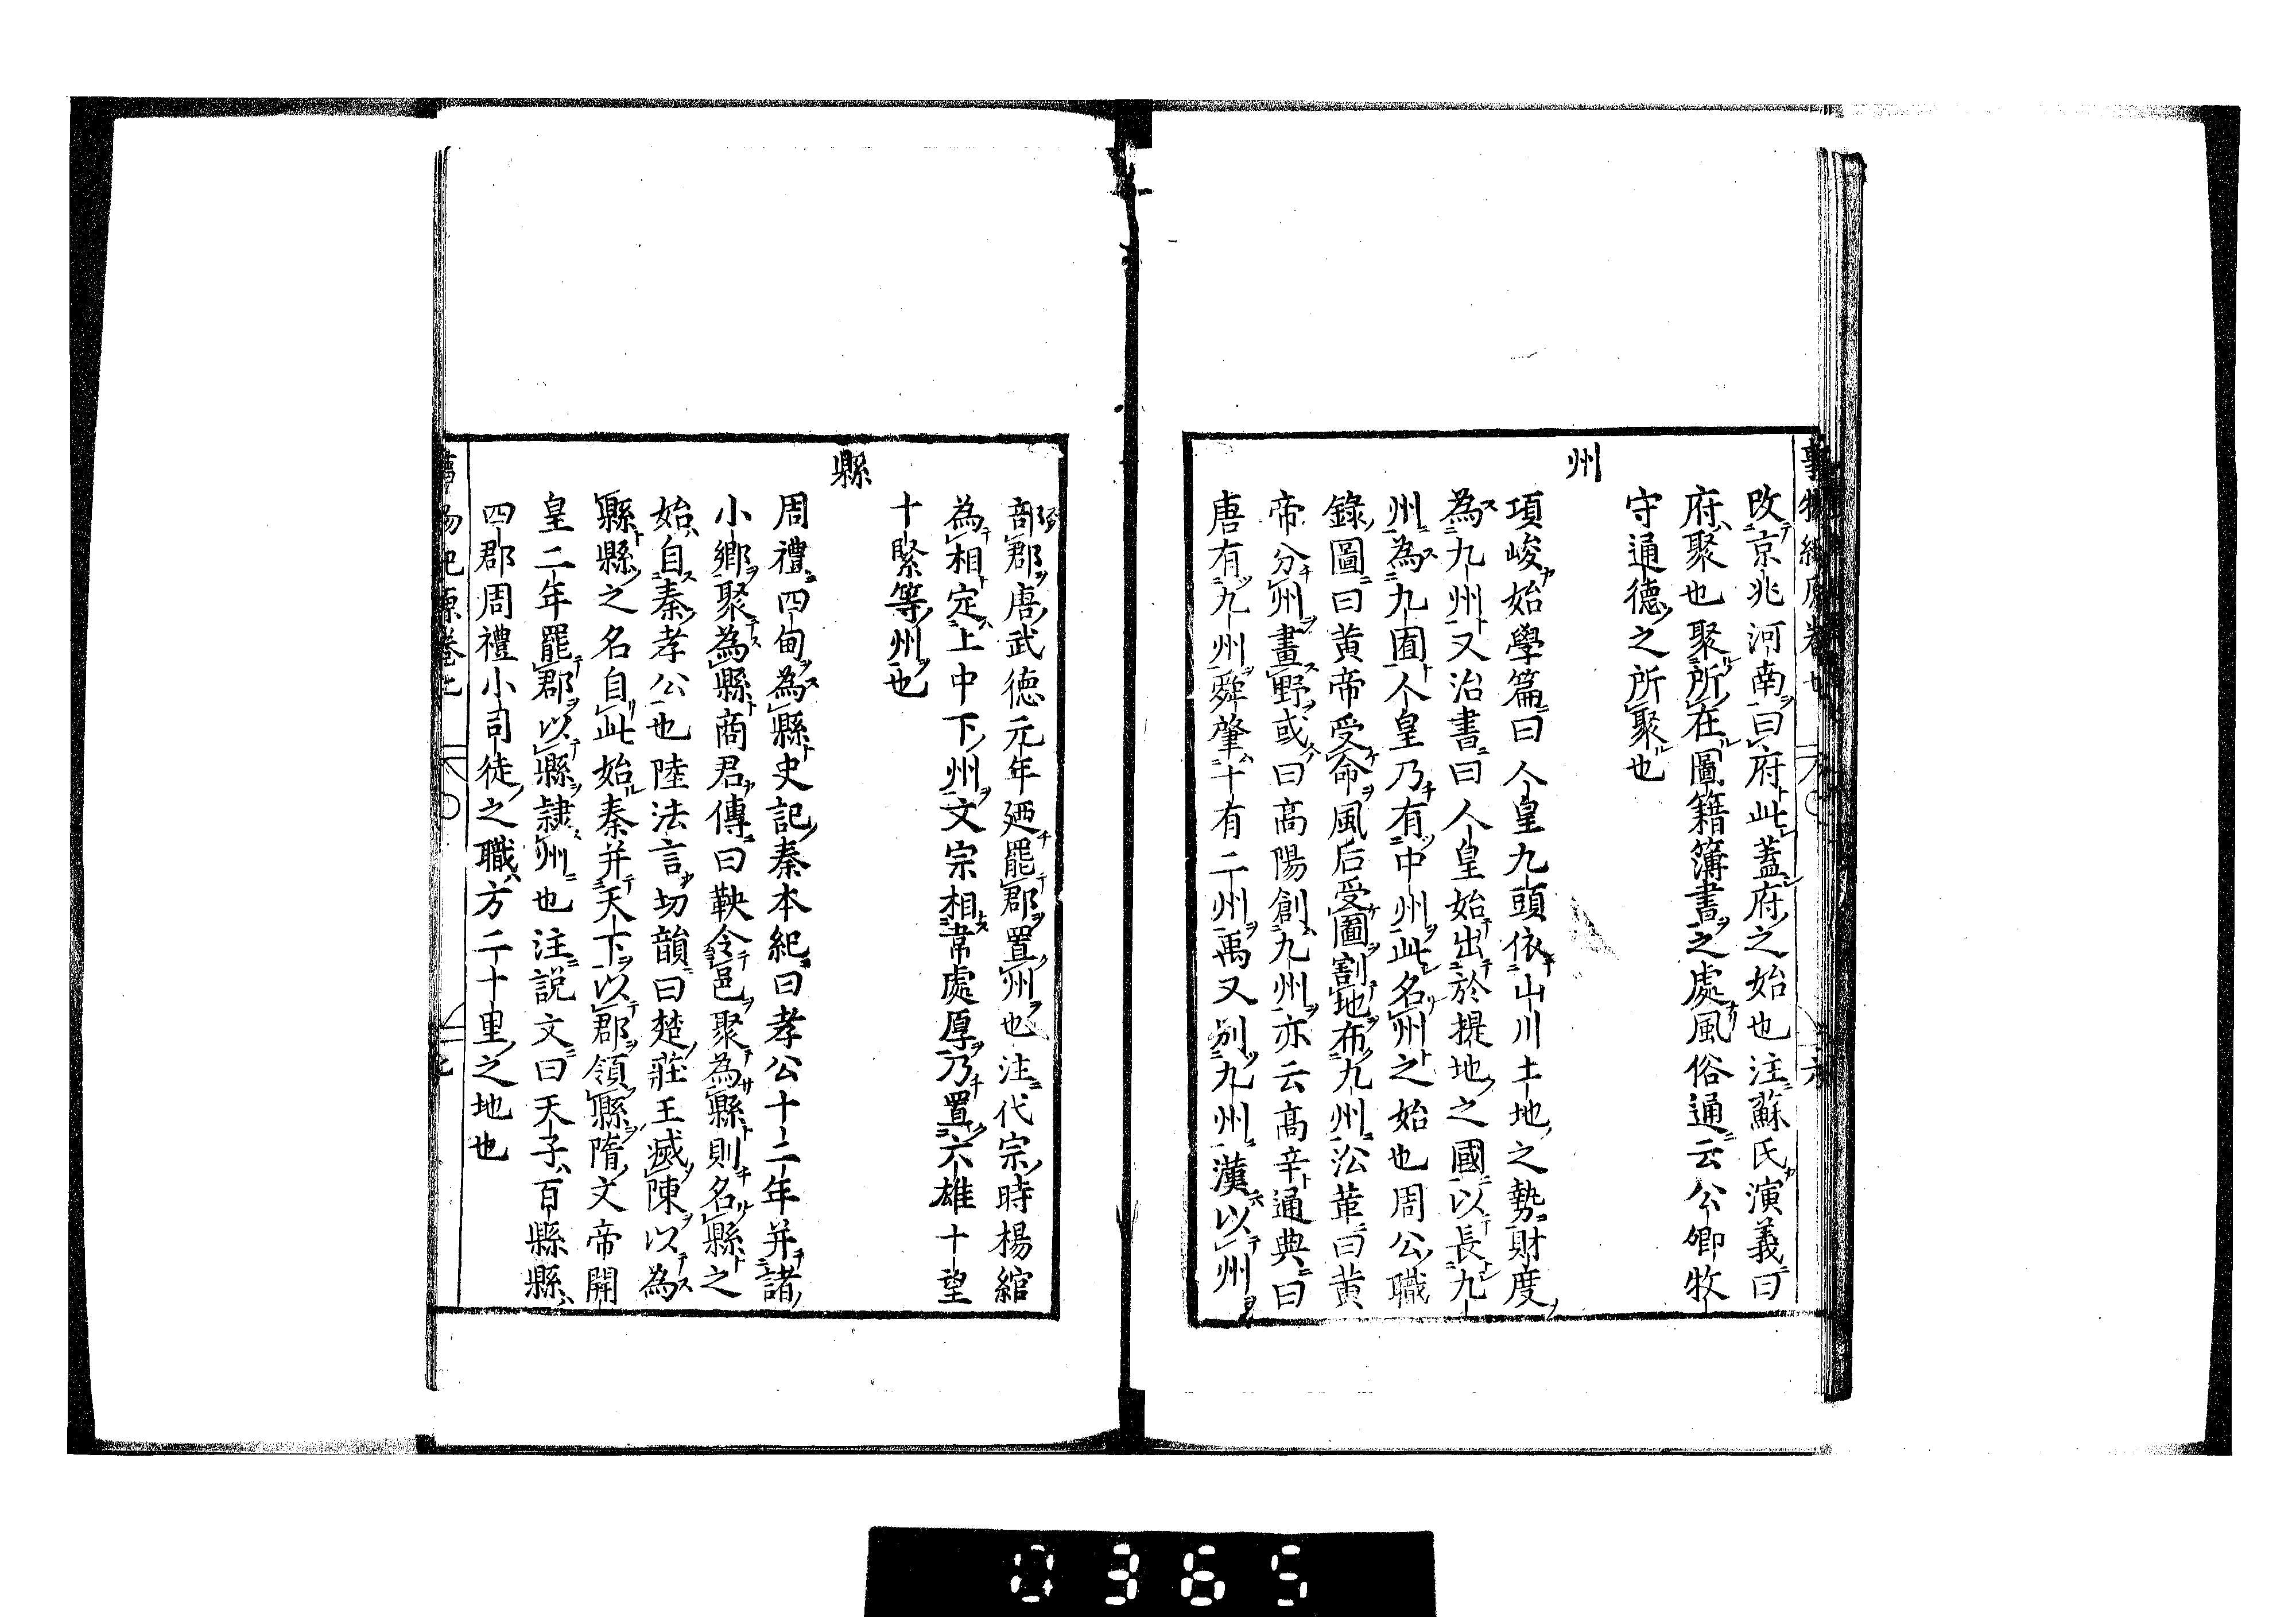 改京兆河南曰府此蓋府之始也注蘇氏演義曰
府聚也聚所在圖籍簿書之處風俗通云公卿牧
守通德之所聚也
州
項峻始學篇曰人皇九頭依山川土地之勢財度
為九州又治書曰人皇始出於提地之國以長九
州為九囿人皇乃有中州此名州之始也周公職
錄圖曰黃帝受命風后受圖割地布九州公革曰黃
帝分州畫野或曰高陽創九州亦云高辛通典曰
唐有九州舜肇十有二州禹又別九州漢以州
部郡唐武德元年廼罷郡置州也注代宗時楊綰
為相定上中下州文宗相韋處厚乃置六雄十望
十緊等州也
縣
周禮四甸為縣史記秦本紀曰孝公十二年并諸
小鄉聚為縣商君傳曰鞅令邑聚為縣則名縣之
始自秦孝公也陸法言切韻曰楚莊王滅陳以為
縣縣之名自此始秦并天下以郡領縣隋文帝開
皇二年罷郡以縣隷州也注說文曰天子百縣縣
四郡周禮小司徒之職方二十里之地也
0365